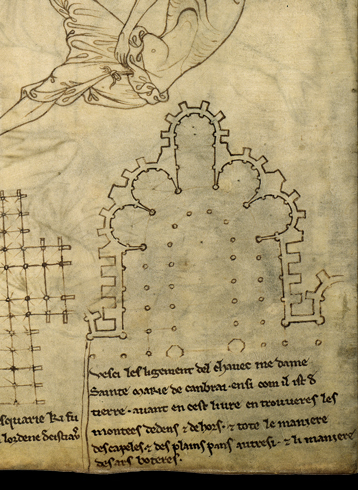 squarie ki fu
lordene decistiaus
vesci les ligement del chavec me dame
Sainte marie de canbrai · ensi com il ist d
tierre · auant en cest liure en trouueres les
montees dedens ⁊ dehors · ⁊ tote le maniere
des capeles · ⁊ des plains pans autresi · ⁊ li maniere
des ars boteres ·